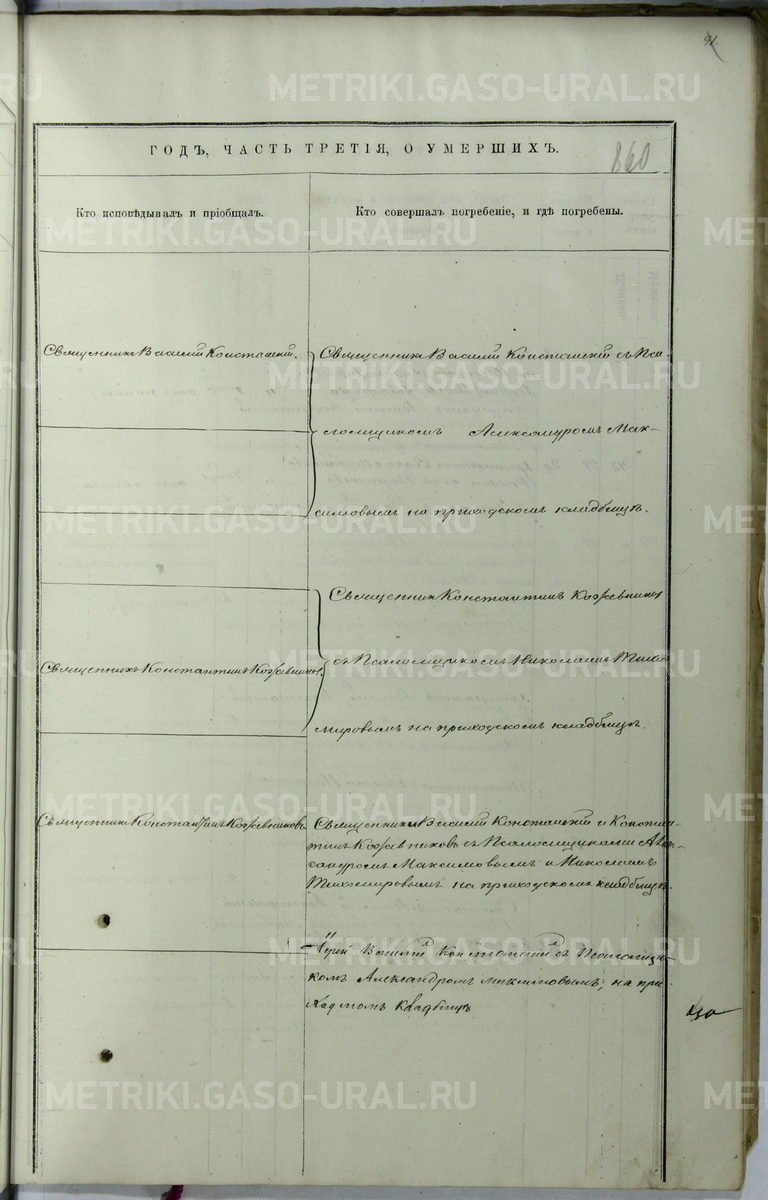 91.
ГОДЪ, ЧАСТЬ ТРЕТІЯ, О УМЕРШИХЪ.
860
Кто исповѣдывалъ и пріобщалъ.
Кто совершалъ погребеніе, и гдѣ погребены.
Священникъ Василій Констанскій.
Священникъ Василій Констанскій съ Пса-
ломщикомъ Александромъ Мак-
симовымъ на приходскомъ кладбищѣ.
Священникъ Константинъ Кожевниковъ
Священникъ Константинъ Кожевниковъ
съ Псаломщикомъ Николаемъ Тихо-
мировымъ на приходскомъ кладбищѣ.
Священникъ Константинъ Кожевниковъ
Священники Василій Констанскій и Констан-
тинъ Кожевниковъ съ Псаломщиками Алек-
сандромъ Максимовымъ и Николаемъ
Тихомировымъ на приходскомъ кладбищѣ.
Іерей Василій Констанскій съ Псаломщи-
комъ Александромъ Максимовымъ, на при-
ходскомъ кладбищѣ
METRIKI.GASO-URAL.RU